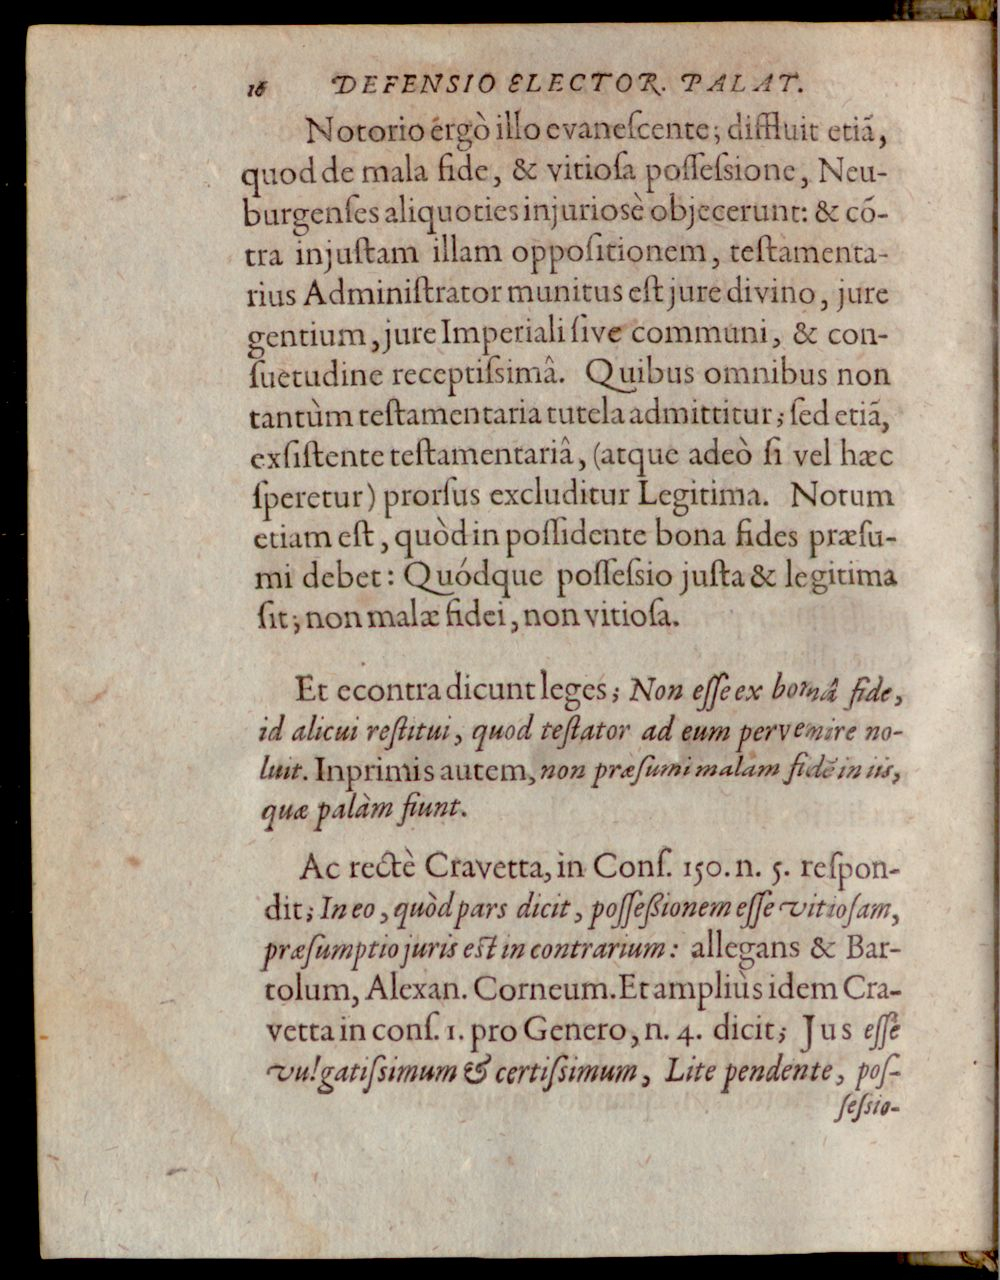 16 DEFENSIO ELECTOR. PALAT.
Notorio érgò illo evaneſcente; diffluit etiã,
quod de mala fide, & vitioſa poſſeſsione, Neu-
burgenſes aliquoties injuriosè objecerunt: & cõ-
tra injuſtam illam oppoſitionem, teſtamenta-
rius Adminiſtrator munitus eſt jure divino, jure
gentium, jure Imperiali ſive communi, & con-
ſuetudine receptiſsimâ. Quibus omnibus non
tantùm teſtamentaria tutela admittitur; ſed etiã,
exſiſtente teſtamentariâ, (atque adeò ſi vel hæc
ſperetur) prorſus excluditur Legitima. Notum
etiam eſt, quòd in poſſidente bona fides præſu-
mi debet: Quódque poſſeſsio juſta & legitima
ſit; non malæ fidei, non vitioſa.
Et econtra dicunt leges; Non eſſe ex bonâ fide,
id alicui reſtitui, quod teſtator ad eum pervenire no-
luit. Inprimis autem, non præſumi malam fidẽ in iis,
quæ palàm fiunt.
Ac rectè Cravetta, in Conſ. 150. n. 5. reſpon-
dit; In eo, quòd pars dicit, poſſeßionem eſſe vitioſam,
præſumptio juris eſt in contrarium: allegans & Bar-
tolum, Alexan. Corneum. Et ampliùs idem Cra-
vetta in conſ. 1. pro Genero, n. 4. dicit; Jus eſſe
vulgatiſsimum & certiſsimum, Lite pendente, poſ-
ſeſsio-